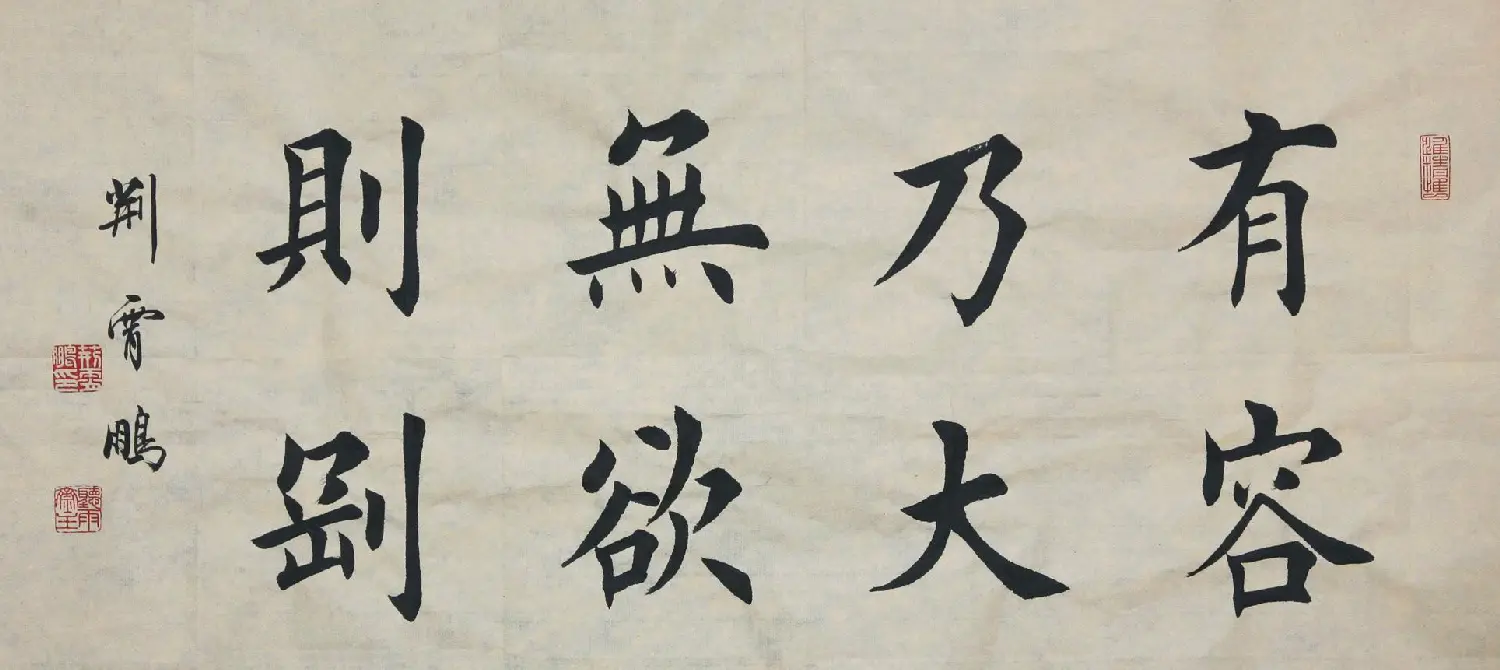 有容
乃大
無欲
則剛
荆霄鵬